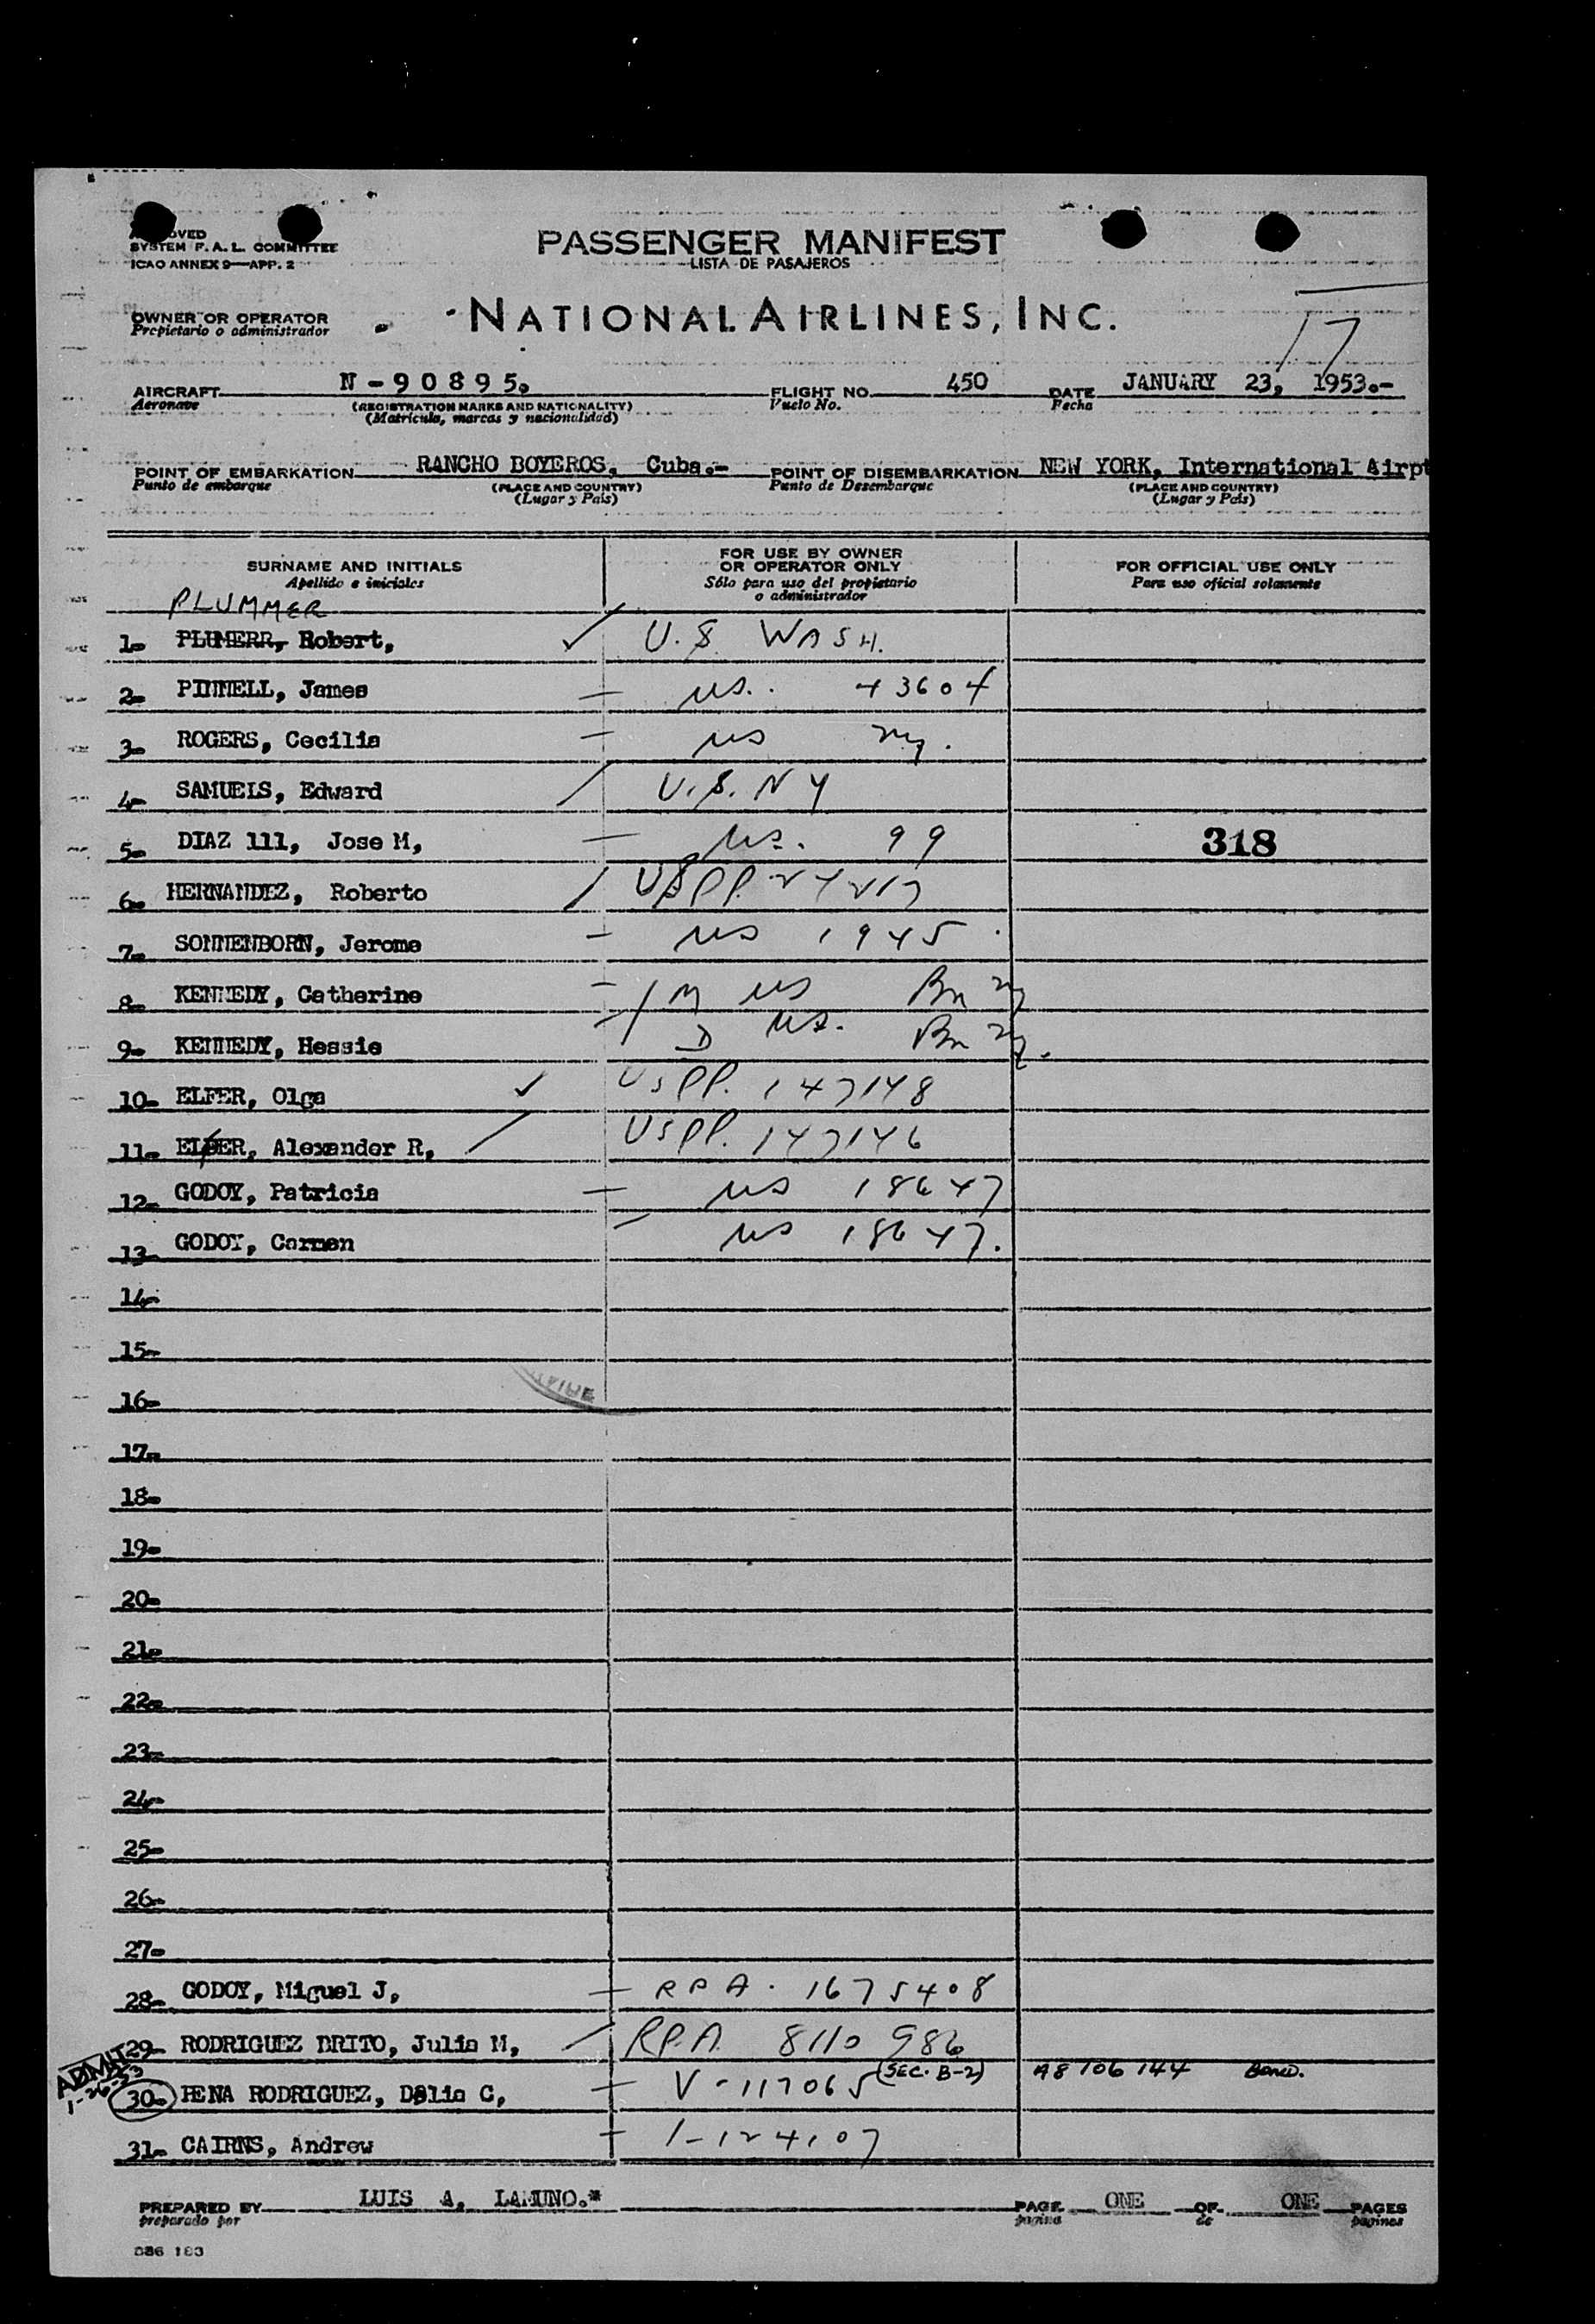 APPROVED
SYSTEM F.A.L. COMMITTEE
ICAO ANNEX 9—APP. 2
PASSENGER MANIFEST
LISTA DE PASAJEROS
OWNER OR OPERATOR
Propietario o administrador
NATIONAL AIRLINES, INC.
17
AIRCRAFT N-90895. FLIGHT NO. 450 DATE JANUARY 23, 1953.-
Aeronave (REGISTRATION MARKS AND NATIONALITY) Vuelo No. Fecha
(Matrícula, marcas y nacionalidad)
POINT OF EMBARKATION RANCHO BOYEROS, Cuba.- POINT OF DISEMBARKATION NEW YORK, International Airpt
Punto de embarque (PLACE AND COUNTRY) Punto de Desembarque (PLACE AND COUNTRY)
(Lugar y País) (Lugar y País)
SURNAME AND INITIALS FOR USE BY OWNER OR OPERATOR ONLY FOR OFFICIAL USE ONLY
Apellido e iniciales Sólo para uso del propietario o administrador Para uso oficial solamente
PLUMMER
1- PLUMERR, Robert, U.S. WASH.
2- PINNELL, James US. 43604
3- ROGERS, Cecilia US NY.
4- SAMUELS, Edward U.S. NY
5- DIAZ 111, Jose M, US. 99 318
6- HERNANDEZ, Roberto USPP. 24217
7- SONNENBORN, Jerome US 1945
8- KENNEDY, Catherine M US Bn NY
9- KENNEDY, Hessie D US. Bn NY.
10- ELFER, Olga USPP. 147148
11- ELFER, Alexander R, USPP. 147146
12- GODOY, Patricia US 18647
13- GODOY, Carmen US 18647.
14-
15-
16-
17-
18-
19-
20-
21-
22-
23-
24-
25-
26-
27-
28- GODOY, Miguel J, RPA. 1675408
29- RODRIGUEZ BRITO, Julia M, RPA 8110 986
ADMIT
1-26-53
30- PENA RODRIGUEZ, Delia C, V-117065 (SEC. B-2) A8 106 144 BOND.
31- CAIRNS, Andrew 1-124107
PREPARED BY LUIS A. LAMUNO.* PAGE ONE OF ONE PAGES
preparado por pagina de paginas